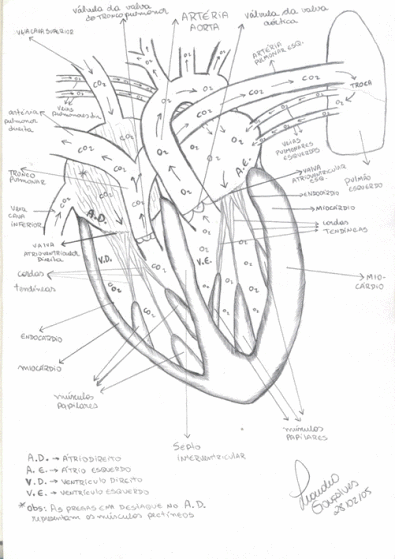 válvula da valva
do tronco pulmonar
ARTÉRIA
AORTA
válvula da valva
aórtica
VEIA CAVA SUPERIOR
ARTÉRIA
PULMONAR ESQ.
CO2
O2
TROCA
veias
pulmonares dir.
artéria
pulmonar
direita
VEIAS
PULMONARES
ESQUERDAS
TRONCO
PULMONAR
*
A.E.
VALVA
ATRIOVENTRICULAR
ESQ.
PULMÃO
ESQUERDO
ENDOCÁRDIO
VEIA
CAVA
INFERIOR
A.D.
MIOCÁRDIO
cordas
TENDÍNEAS
VALVA
ATRIOVENTRICULAR
DIREITA
V.D.
V.E.
cordas
tendíneas
MIO-
CÁRDIO
ENDOCÁRDIO
MIOCÁRDIO
músculos
PAPILARES
músculos
PAPILARES
SEPTO
INTERVENTRICULAR
A.D. → ÁTRIO DIREITO
A.E. → ÁTRIO ESQUERDO
V.D. → VENTRÍCULO DIREITO
V.E. → VENTRÍCULO ESQUERDO
* obs: As pregas em destaque no A.D.
representam os músculos pectíneos
Leandro
Gonçalves
28/02/05